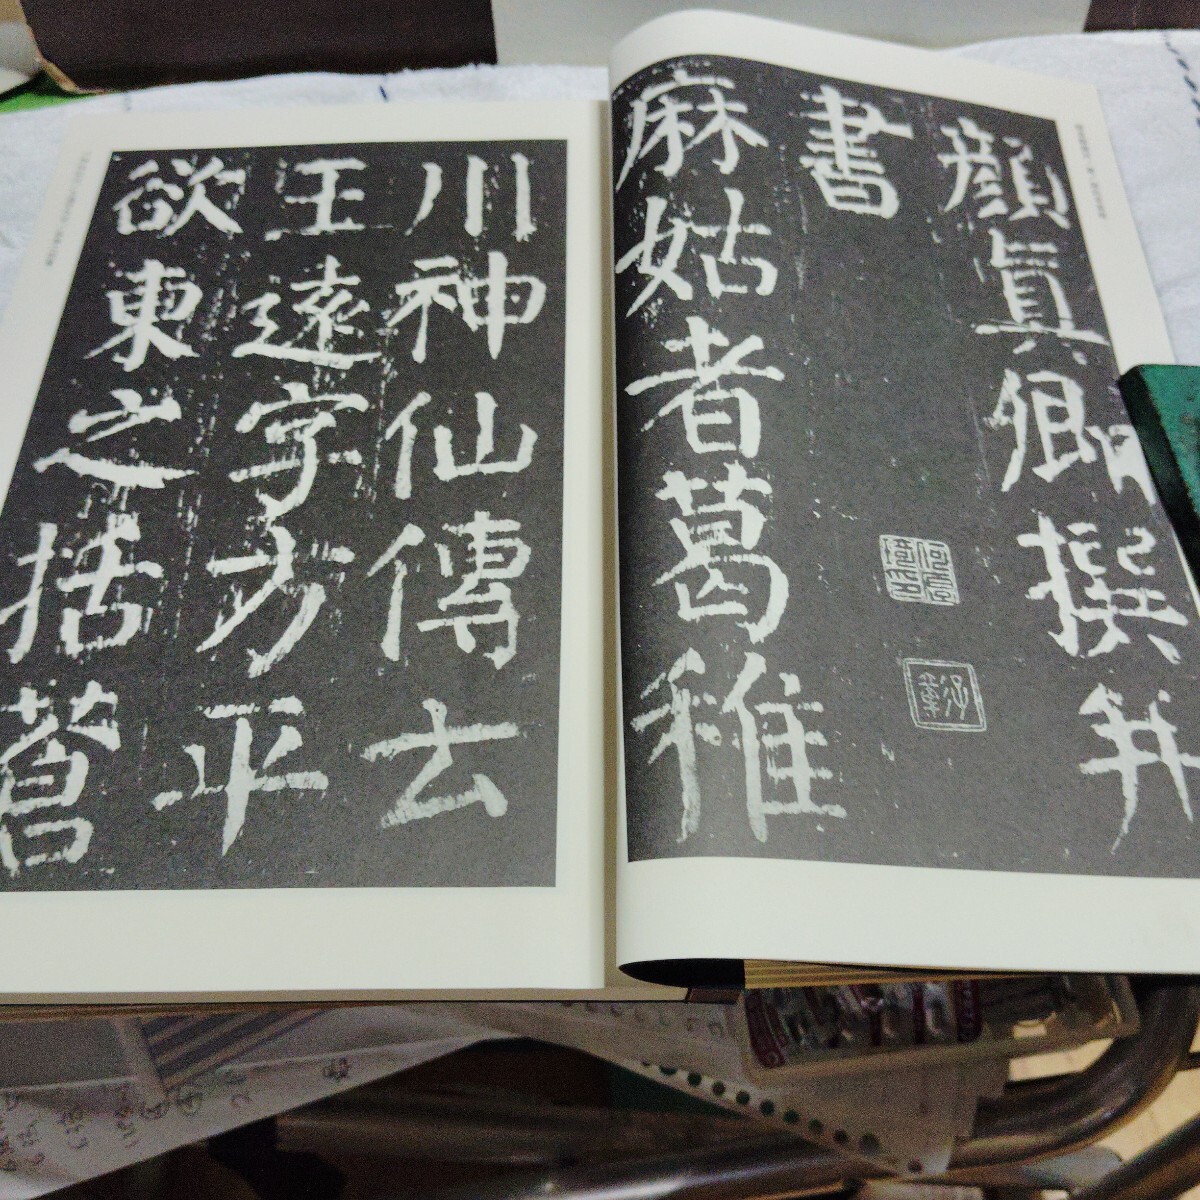 顔真卿撰并
書
麻姑者葛稚
川神仙傳云
王遠字方平
欲東之括蒼